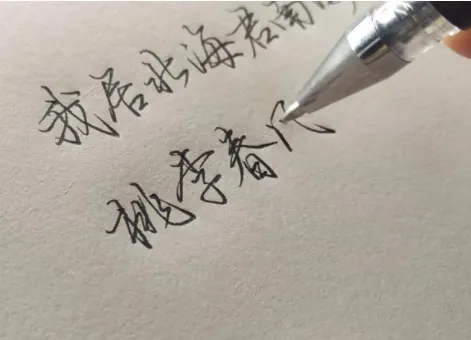 我居北海君南
桃李春